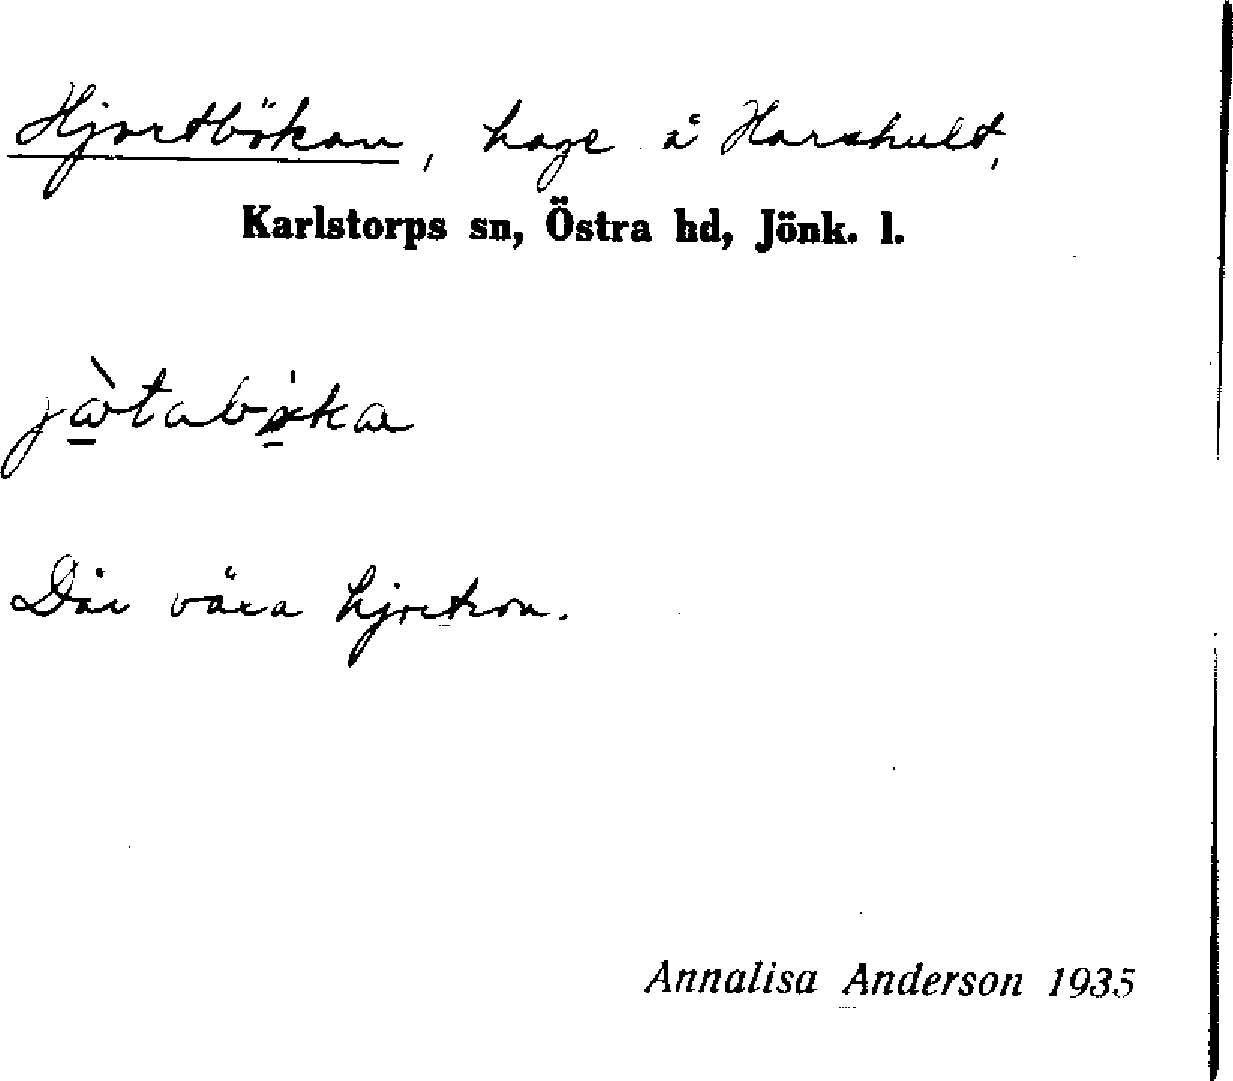 Hjortbökan, hage å Harshult,
Karlstorps sn, Östra hd, Jönk. l.
Där växa hjortron.
Annalisa Anderson 1935